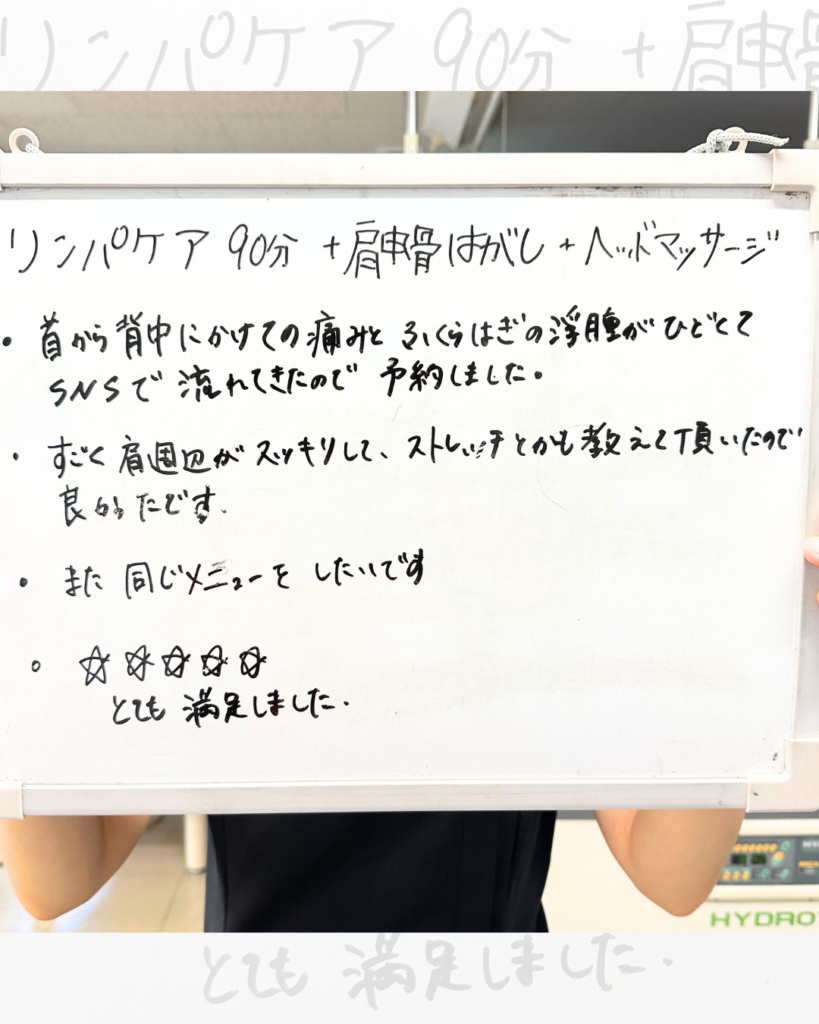 リンパケア 90分 + 肩申骨
リンパケア 90分 + 肩申骨はがし + ヘッドマッサージ
・首から背中にかけての痛みと ふくらはぎの浮腫がひどくて
SNSで 流れてきたので 予約しました。
・すごく 肩周辺が スッキリして、ストレッチとかも教えて頂いたので
良かったです.
・また 同じメニューを したいです
・☆☆☆☆☆
とても 満足しました.
HYDRO
とても 満足しました.